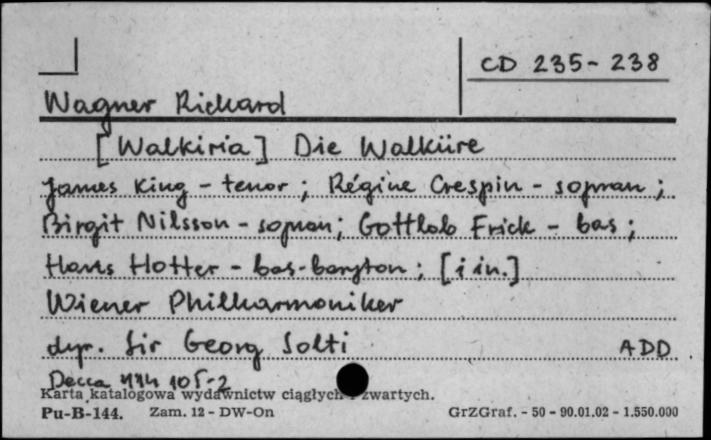 CD 235-238
Wagner Richard
[Walkiria] Die Walküre
James King - tenor; Régine Crespin - sopran;
Birgit Nilsson - sopran; Gottlob Frick - bas;
Hans Hotter - bas-baryton; [i in.]
Wiener Philharmoniker
dyr. Sir Georg Solti ADD
Decca 414 105-2
Karta katalogowa wydawnictw ciągłych i zwartych.
Pu-B-144. Zam. 12 - DW-On GrZGraf. - 50 - 90.01.02 - 1.550.000